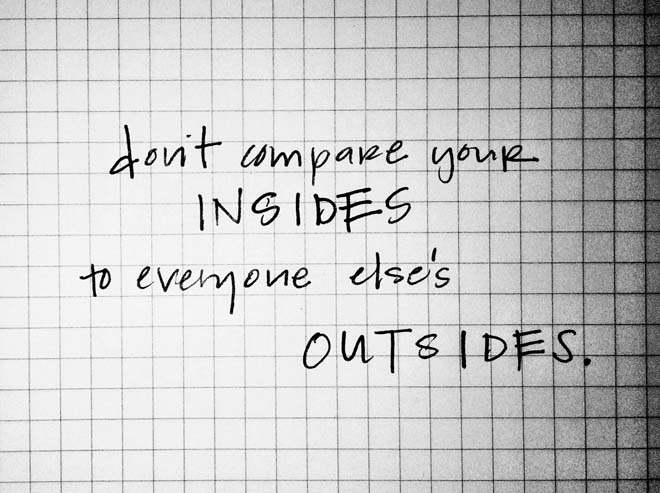 don't compare your
INSIDES
to everyone else's
OUTSIDES.